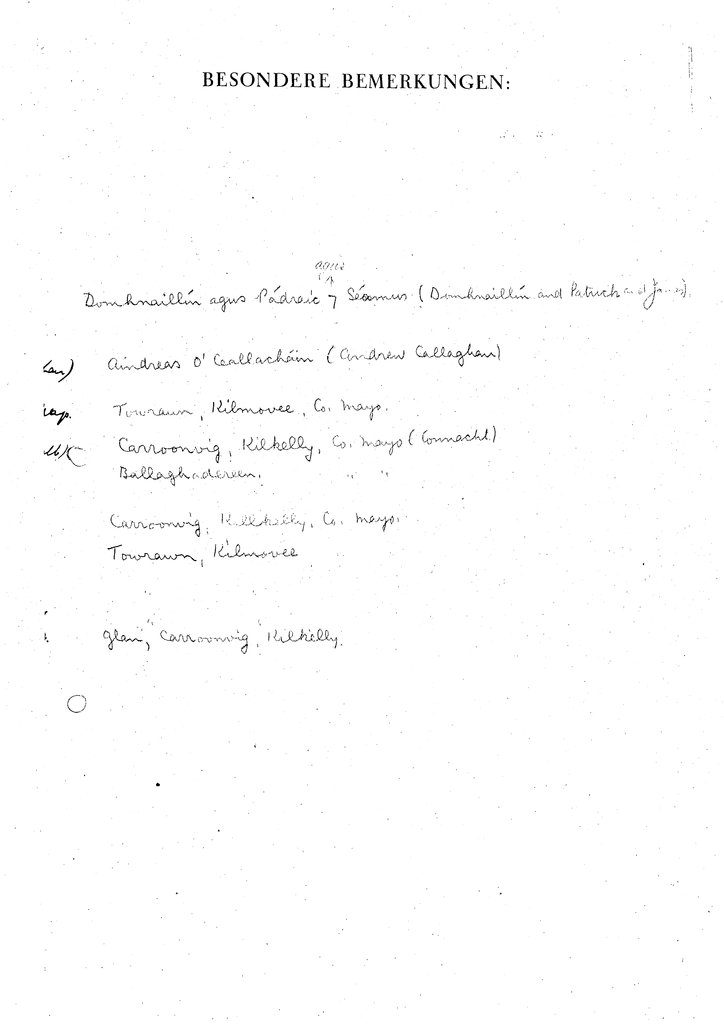 BESONDERE BEMERKUNGEN:
agus
Domhnaillín agus Pádraic 7 Séamus (Domhnaillín and Patrick and James).
Aindreas O' Ceallacháin (Andrew Callaghan)
Towraun, Kilmovee, Co. Mayo.
Carroonvig, Kilkelly, Co. Mayo (Connacht.)
Ballaghadereen. " "
Carroonvig, Killkelly, Co. Mayo.
Towrawn, Kilmovee
Glan, Carroonvig, Kilkelly.